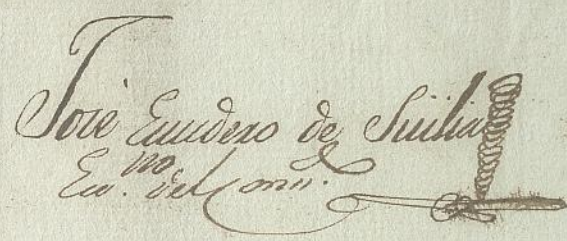 José Escudero de Sicilia
Es.no del